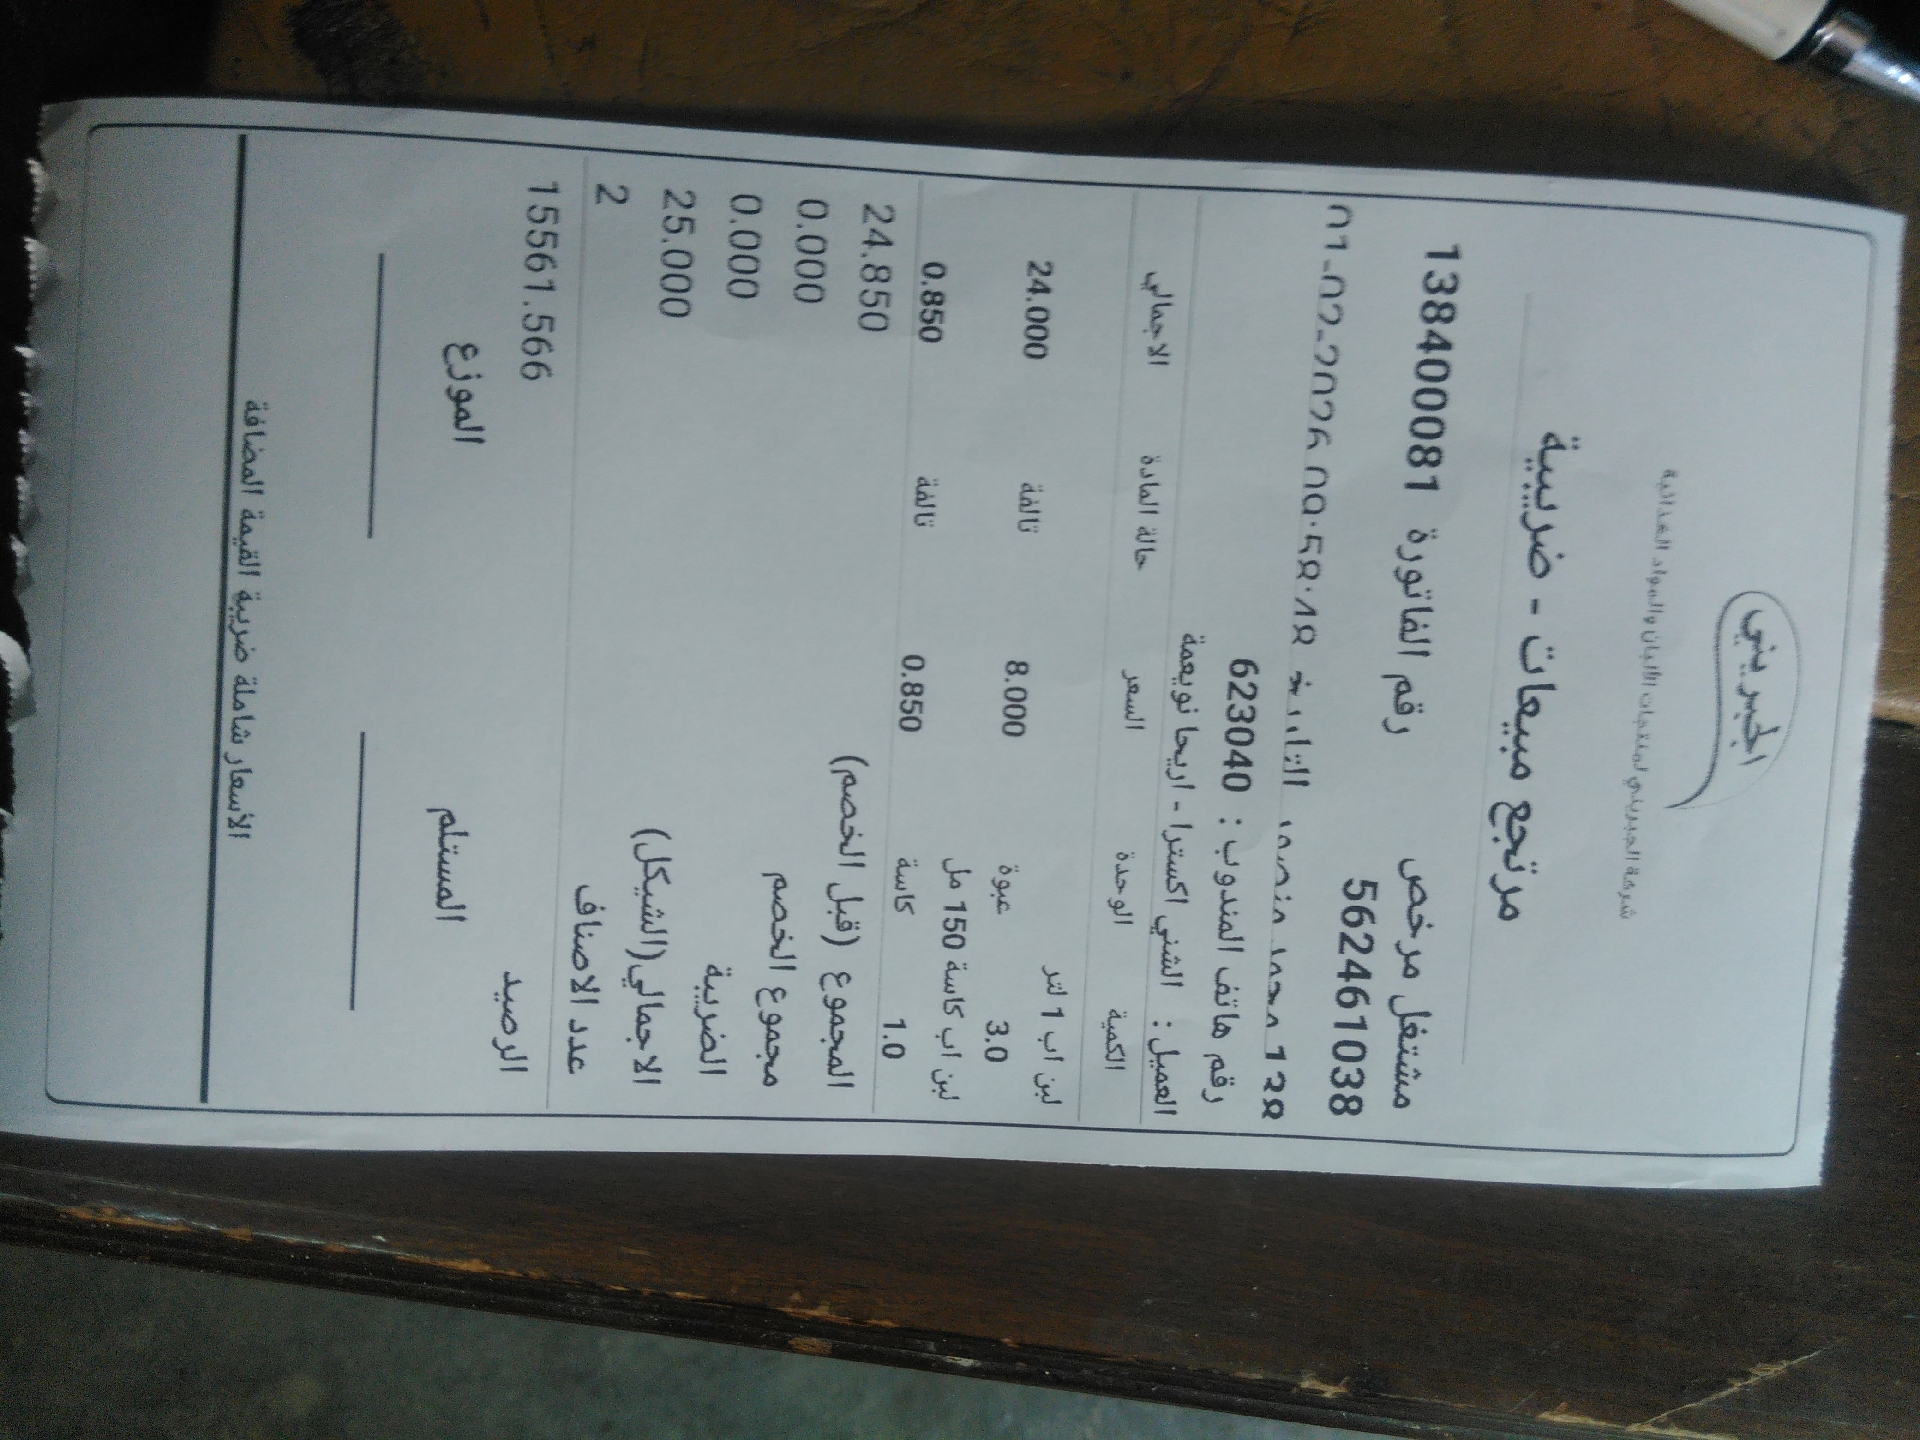 الجبريني
شركة الجبريني لمنتجات الألبان والمواد الغذائية
مرتجع مبيعات - ضريبية
مشتغل مرخص رقم الفاتورة 138400081
562461038
التاريخ 01-02-2026
رقم هاتف المندوب : 623040
العميل : الشني اكسترا - اريحا نويعمة
الكمية الوحدة السعر حالة المادة الاجمالي
لبن اب 1 لتر
3.0 عبوة 8.000 تالفة 24.000
لبن اب كاسة 150 مل
1.0 كاسة 0.850 تالفة 0.850
المجموع (قبل الخصم) 24.850
مجموع الخصم 0.000
الضريبة 0.000
الاجمالي(الشيكل) 25.000
عدد الاصناف 2
الرصيد 15561.566
المستلم الموزع
الأسعار شاملة ضريبة القيمة المضافة